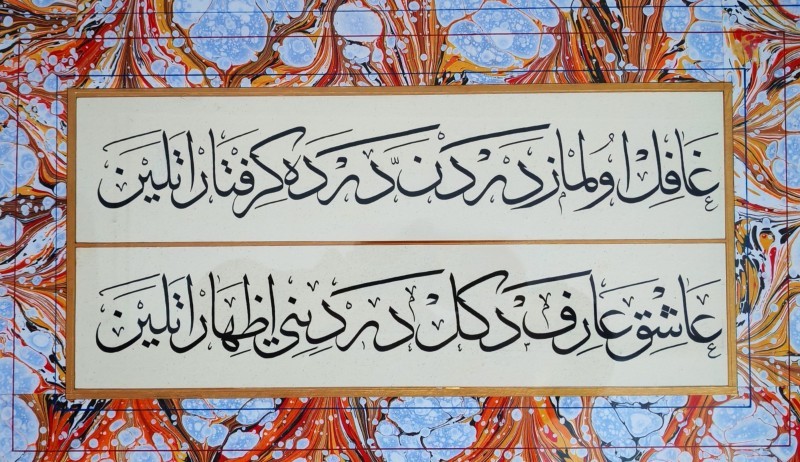 غافل اولماز دردن درده گرفتار اتلين
عاشق عارف دگل دردينى اظهار اتلين